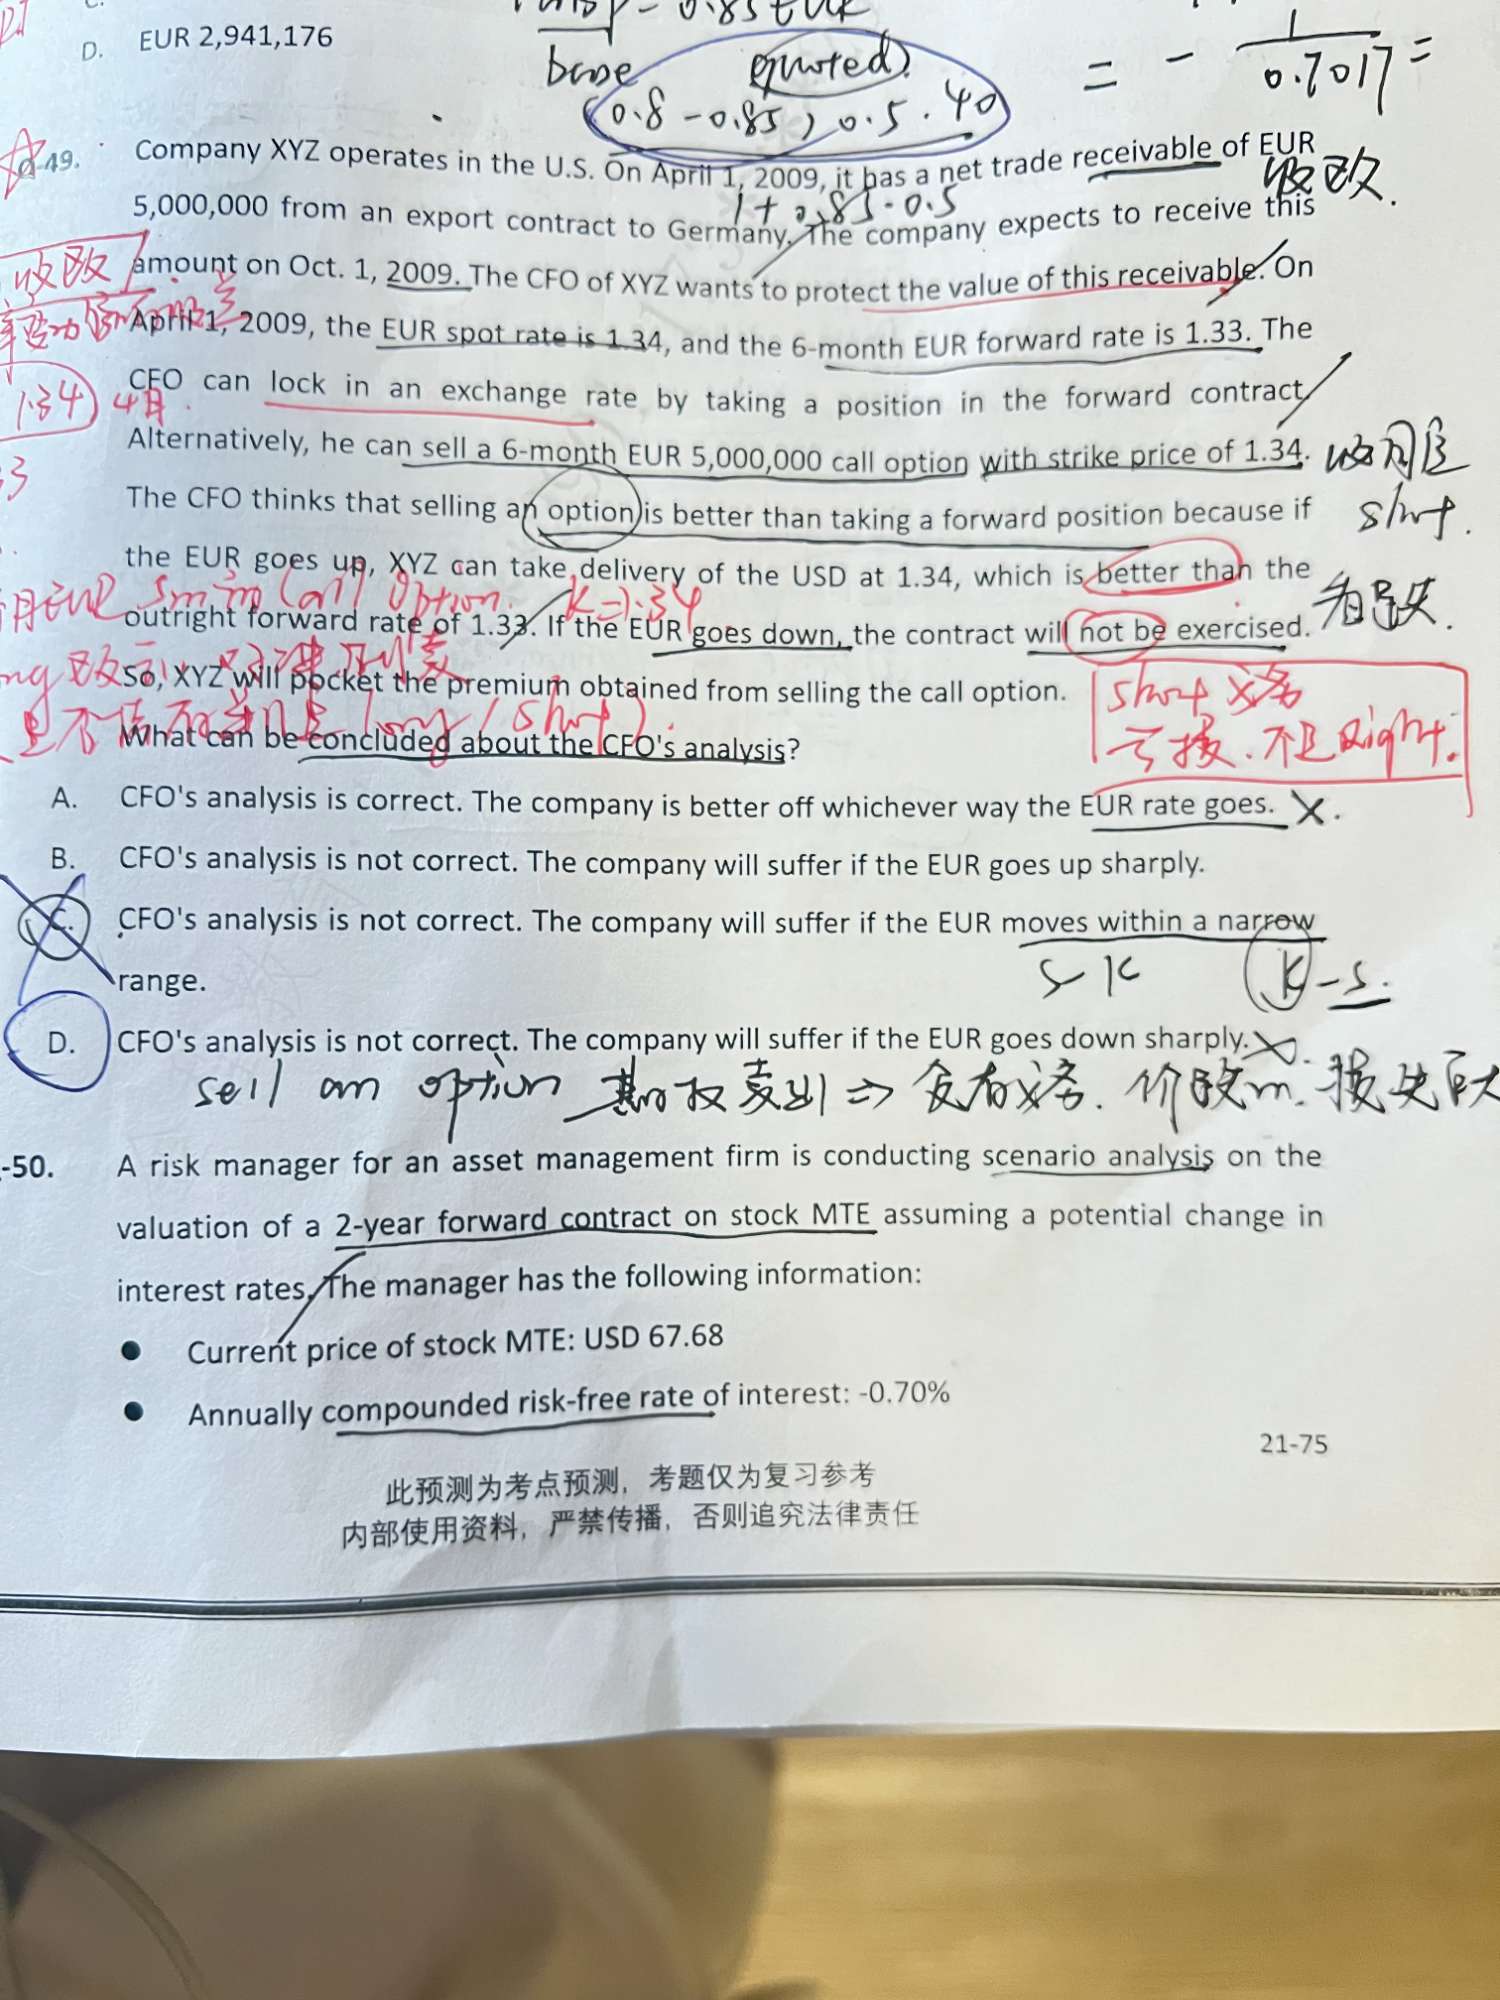 D. EUR 2,941,176
base quoted
(0.8-0.85) 0.5.40
= - 1/0.7017 =
49. Company XYZ operates in the U.S. On April 1, 2009, it has a net trade receivable of EUR
收欧.
1+0.85·0.5
5,000,000 from an export contract to Germany. The company expects to receive this
收欧
amount on Oct. 1, 2009. The CFO of XYZ wants to protect the value of this receivable. On
April 1, 2009, the EUR spot rate is 1.34, and the 6-month EUR forward rate is 1.33. The
1.34 4月.
CFO can lock in an exchange rate by taking a position in the forward contract.
Alternatively, he can sell a 6-month EUR 5,000,000 call option with strike price of 1.34.
The CFO thinks that selling an option is better than taking a forward position because if
short.
the EUR goes up, XYZ can take delivery of the USD at 1.34, which is better than the
call option. K=1.34
outright forward rate of 1.33. If the EUR goes down, the contract will not be exercised.
So, XYZ will pocket the premium obtained from selling the call option.
short 义务
不是 right.
long / short)
What can be concluded about the CFO's analysis?
A. CFO's analysis is correct. The company is better off whichever way the EUR rate goes. X.
B. CFO's analysis is not correct. The company will suffer if the EUR goes up sharply.
C. CFO's analysis is not correct. The company will suffer if the EUR moves within a narrow
range.
S-K K-S.
D. CFO's analysis is not correct. The company will suffer if the EUR goes down sharply. X.
sell an option 期权卖出 ⇒ 负有义务.
-50. A risk manager for an asset management firm is conducting scenario analysis on the
valuation of a 2-year forward contract on stock MTE assuming a potential change in
interest rates. The manager has the following information:
● Current price of stock MTE: USD 67.68
● Annually compounded risk-free rate of interest: -0.70%
21-75
此预测为考点预测，考题仅为复习参考
内部使用资料，严禁传播，否则追究法律责任